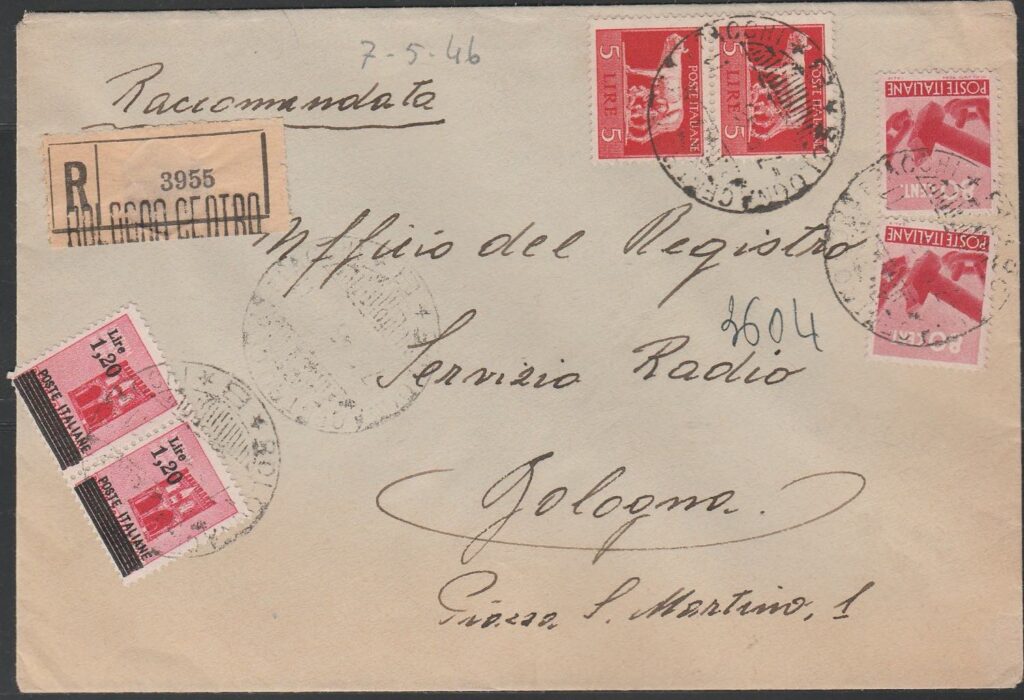 7-5-46
Raccomandata
R
3955
BOLOGNA CENTRO
5 LIRE 5
POSTE ITALIANE
5 LIRE
POSTE ITALIANE
POSTE ITALIANE
POSTE ITALIANE
80
Ufficio del Registro
3604
Servizio Radio
Bologna
Piazza S. Martino, 1
Lire 1,20
POSTE ITALIANE
Lire 1,20
POSTE ITALIANE